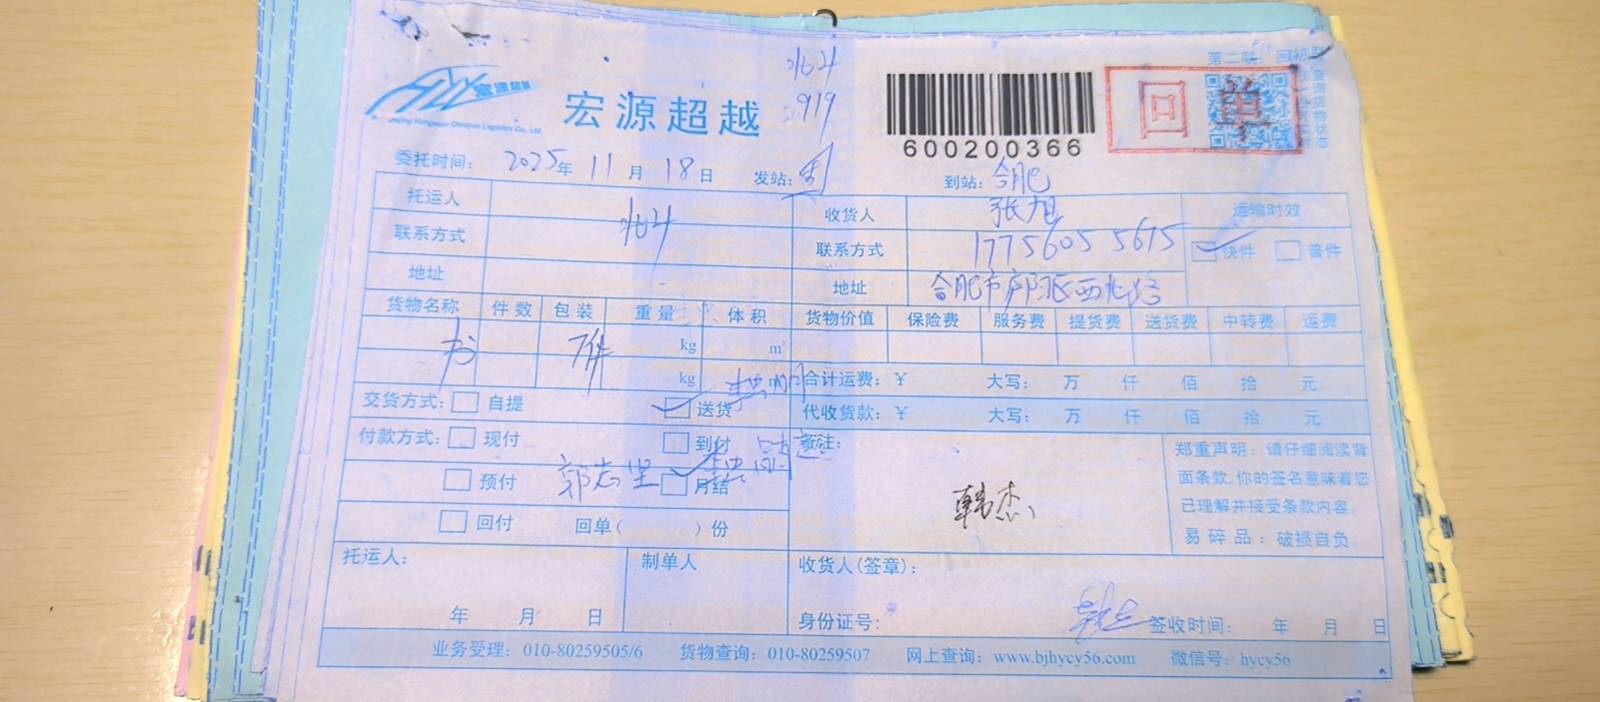 第二联
回单
宏源超越
宏源超越
919
600200366
委托时间: 2025年 11月 18日 发站: 到站: 合肥
托运人 收货人 张旭 运输时效
联系方式 联系方式 17756055675 快件 普件
地址 地址 合肥市庐阳区西北路
货物名称 件数 包装 重量 体积 货物价值 保险费 服务费 提货费 送货费 中转费 运费
书 7件 kg m³
kg m³ 合计运费: ¥ 大写: 万 仟 佰 拾 元
交货方式: 自提 送货 代收货款: ¥ 大写: 万 仟 佰 拾 元
付款方式: 现付 到付 备注:
预付 郭志坚 月结 韩杰
回付 回单( )份
郑重声明: 请仔细阅读背
面条款,你的签名意味着您
已理解并接受条款内容。
易碎品: 破损自负
托运人: 制单人 收货人(签章):
年 月 日 身份证号: 签收时间: 年 月 日
业务受理: 010-80259505/6 货物查询: 010-80259507 网上查询: www.bjhycy56.com 微信号: hycy56